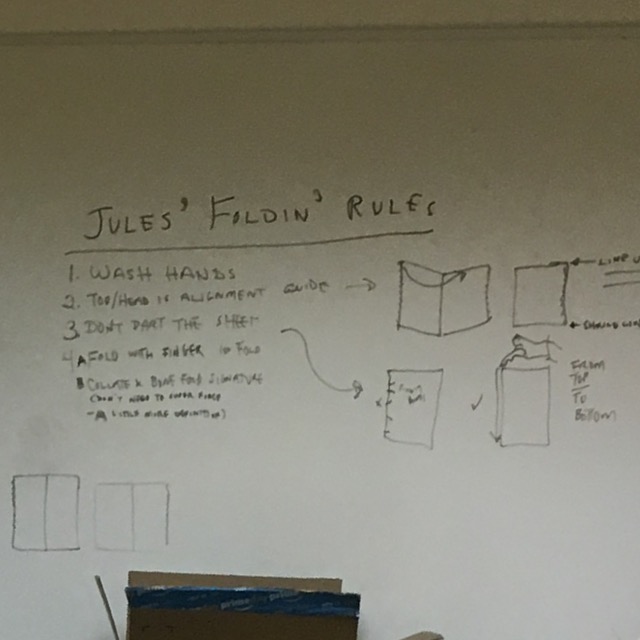 JULES' FOLDIN' RULES
1. WASH HANDS
2. TOP/HEAD IS ALIGNMENT GUIDE →
3. DON'T PART THE SHEET
4 A FOLD WITH FINGER FOLD
B COLLATE & BONE FOLD SIGNATURE
(DON'T NEED TO
A LITTLE MORE
LINE U
FROM
TOP
TO
BOTTOM